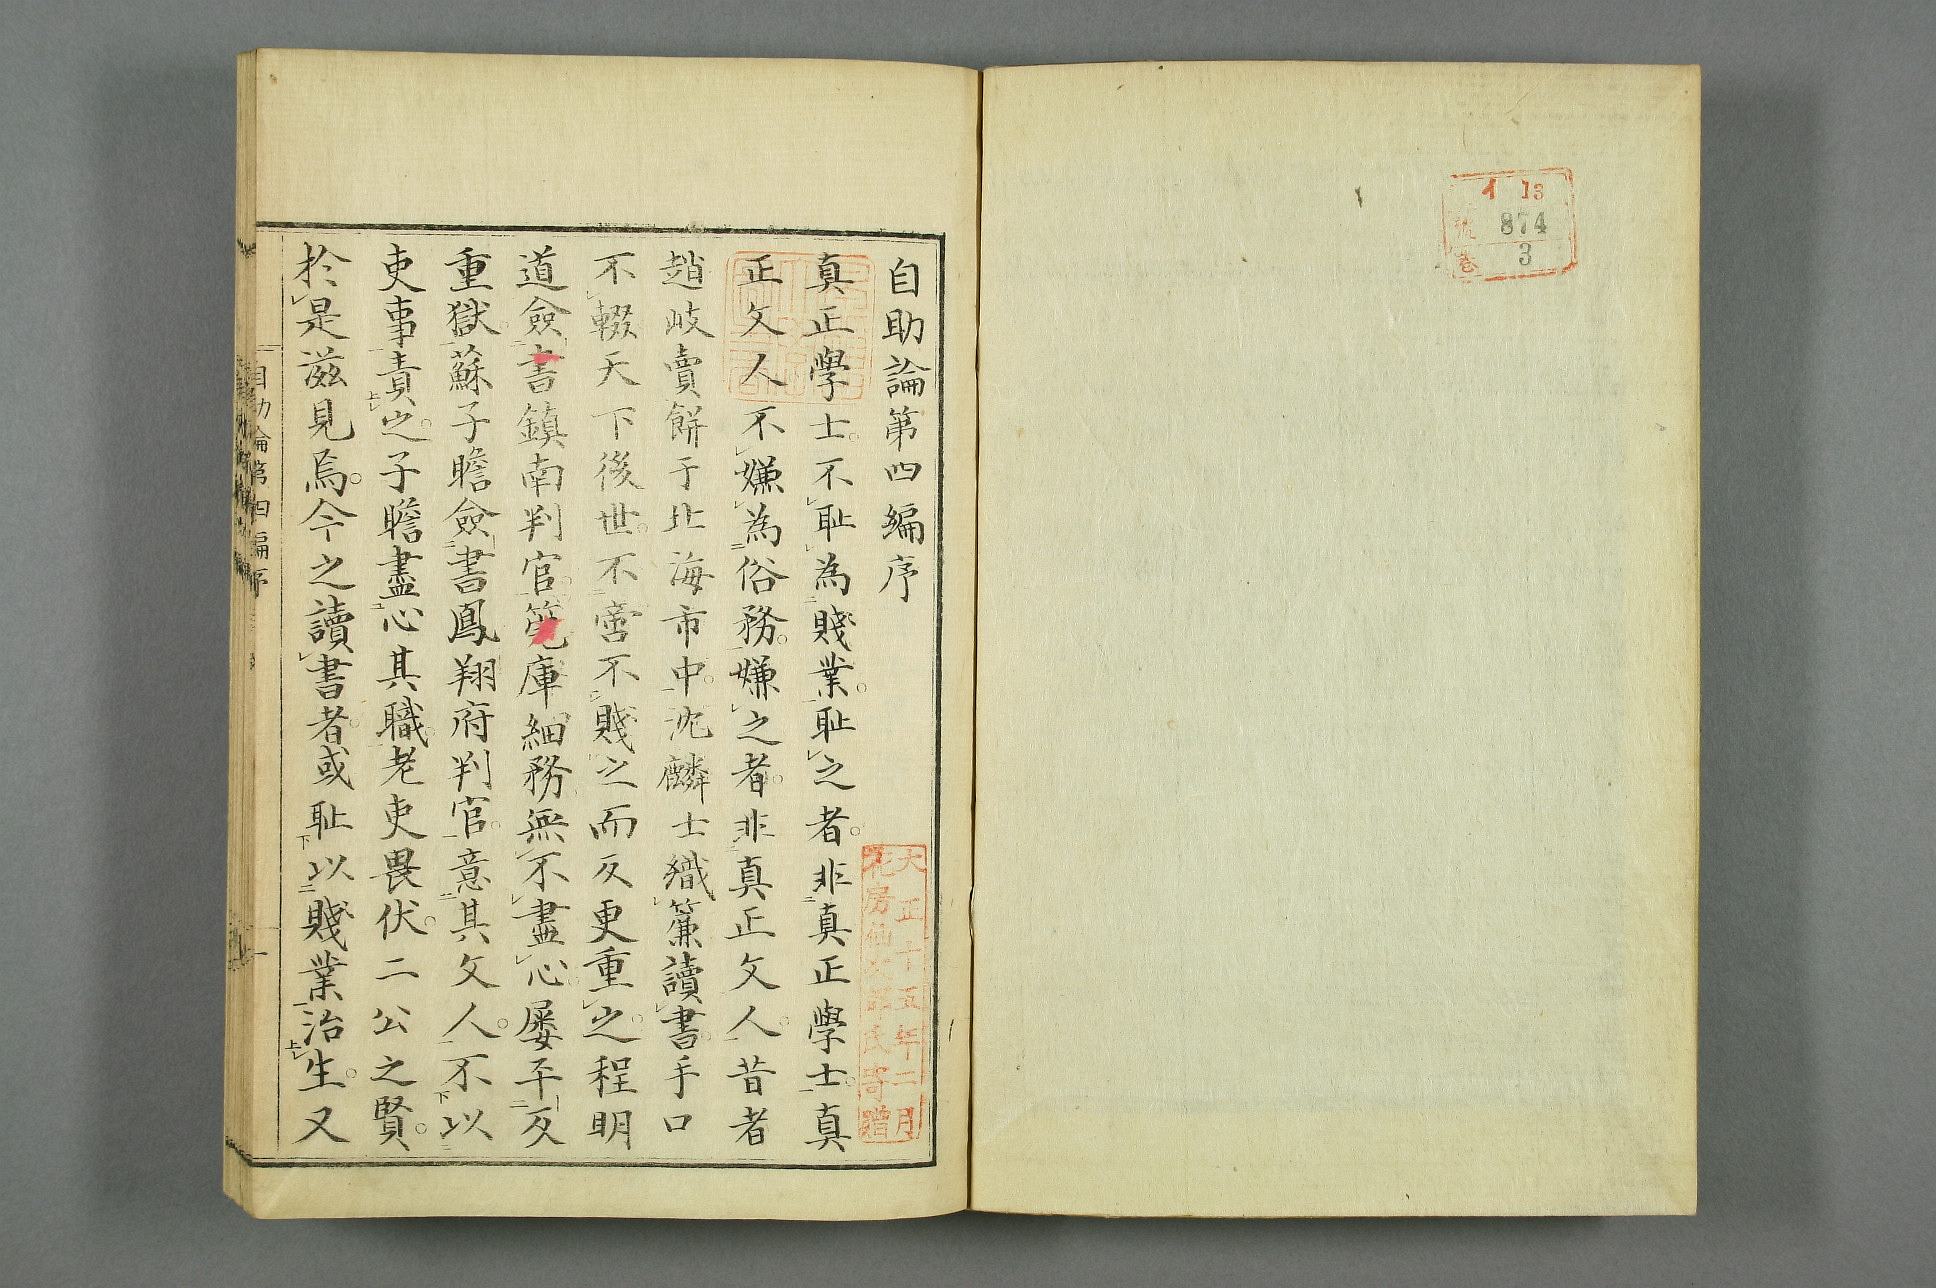 イ 13
號 874
卷 3
自助論第四編序
真正學士。不恥為賤業。恥之者。非真正學士。真
正文人不嫌為俗務。嫌之者。非真正文人。昔者
趙岐賣餅于北海市中。沈麟士織簾讀書。手口
不輟。天下後世。不啻不賤之而反更重之。程明
道僉書鎮南判官。筦庫細務無不盡心。屡平反
重獄。蘇子瞻僉書鳳翔府判官。意其文人。不以
吏事責之。子瞻盡心其職。老吏畏伏。二公之賢。
於是滋見焉。今之讀書者。或恥以賤業治生。又
大正十五年二月
花房仙次郎氏寄贈
自助論第四編序